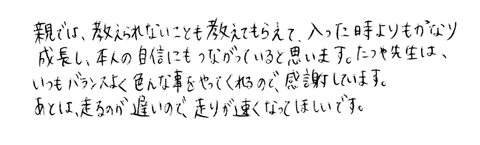 親では、教えられないことも教えてもらえて、入った時よりもかなり
成長し、本人の自信にもつながっていると思います。たつや先生は、
いつもバランスよく色んな事をやってくれるので、感謝しています。
あとは、走るのが遅いので、走りが速くなってほしいです。